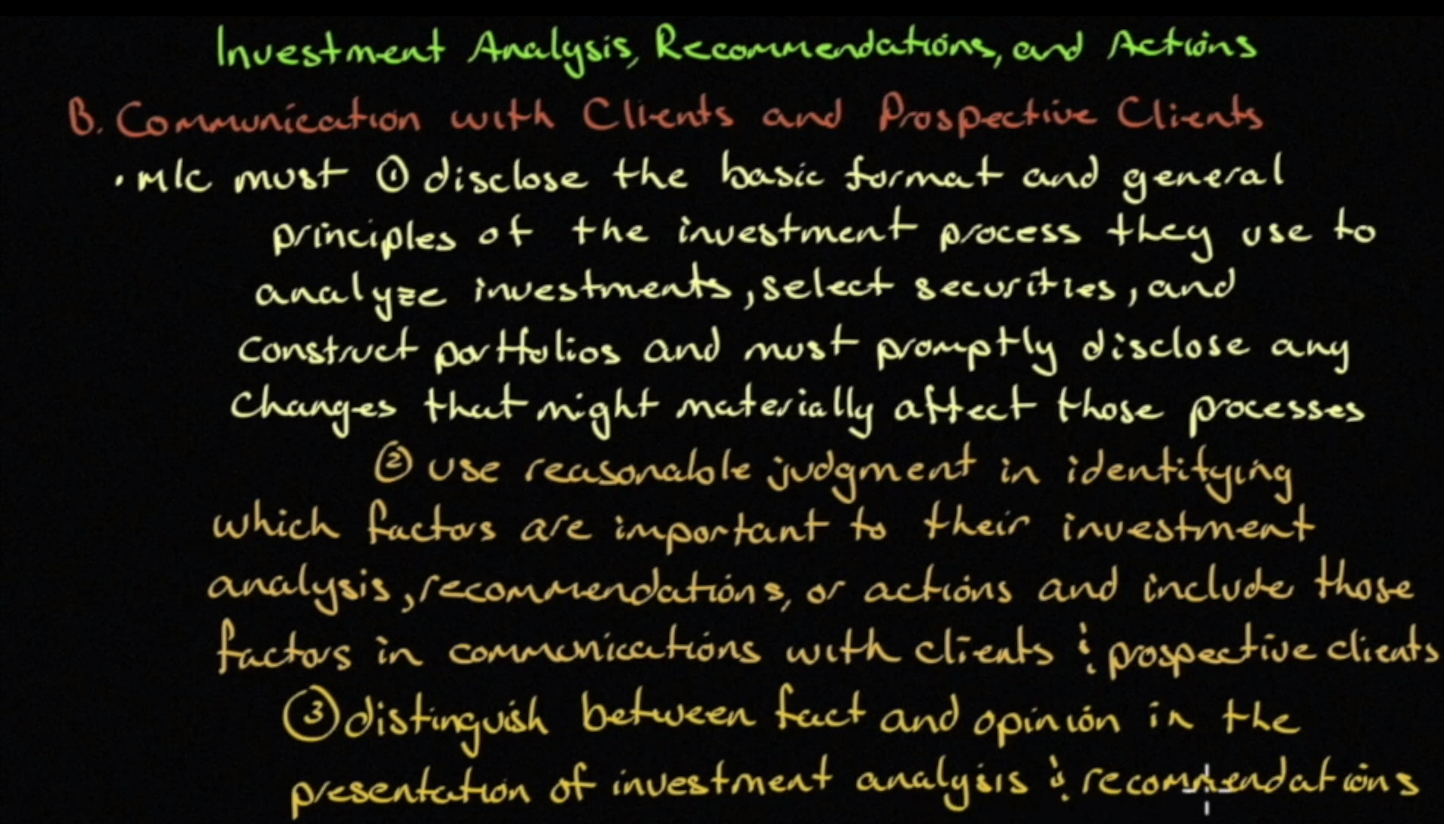 Investment Analysis, Recommendations, and Actions
B. Communication with Clients and Prospective Clients
• M/C must ① disclose the basic format and general
principles of the investment process they use to
analyze investments, select securities, and
construct portfolios and must promptly disclose any
changes that might materially affect those processes
② use reasonable judgment in identifying
which factors are important to their investment
analysis, recommendations, or actions and include those
factors in communications with clients & prospective clients
③ distinguish between fact and opinion in the
presentation of investment analysis & recommendations